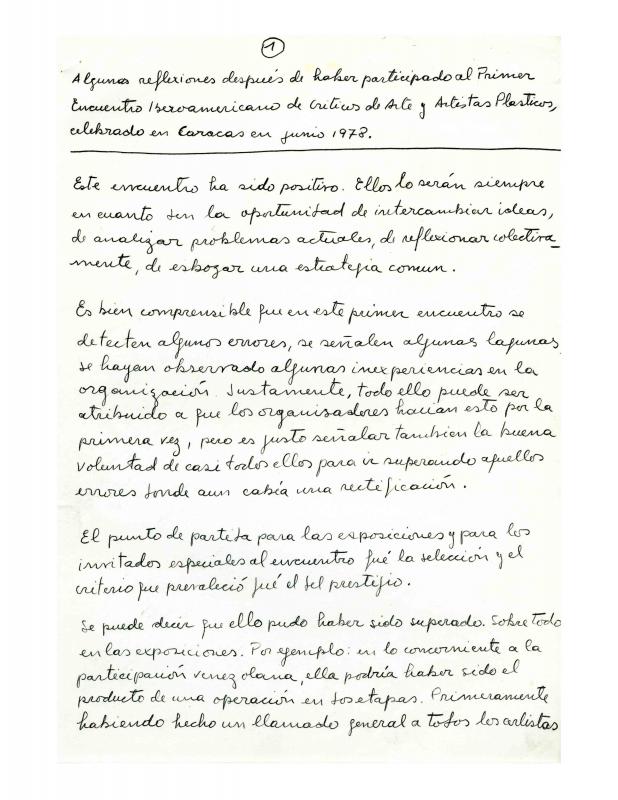 1
Algunas reflexiones después de haber participado al Primer
Encuentro Iberoamericano de Críticos de Arte y Artistas Plasticos,
celebrado en Caracas en junio 1978.
Este encuentro ha sido positivo. Ellos lo serán siempre
en cuanto den la oportunidad de intercambiar ideas,
de analizar problemas actuales, de reflexionar colectiva_
mente, de esbozar una estrategia comun.
Es bien comprensible que en este primer encuentro se
detecten algunos errores, se señalen algunas lagunas,
se hayan observado algunas inexperiencias en la
organización. Justamente, todo ello puede ser
atribuido a que los organisadores hacian esto por la
primera vez, pero es justo señalar tambien la buena
voluntad de casi todos ellos para ir superando aquellos
errores donde aun cabía una rectificación.
El punto de partida para las exposiciones y para los
invitados especiales al encuentro fué la selección y el
criterio que prevaleció fué el del prestigio.
Se puede decir que ello pudo haber sido superado. Sobre todo
en las exposiciones. Por ejemplo: en lo concerniente a la
participación venezolana, ella podría haber sido el
producto de una operación en dos etapas. Primeramente
habiendo hecho un llamado general a todos los artistas